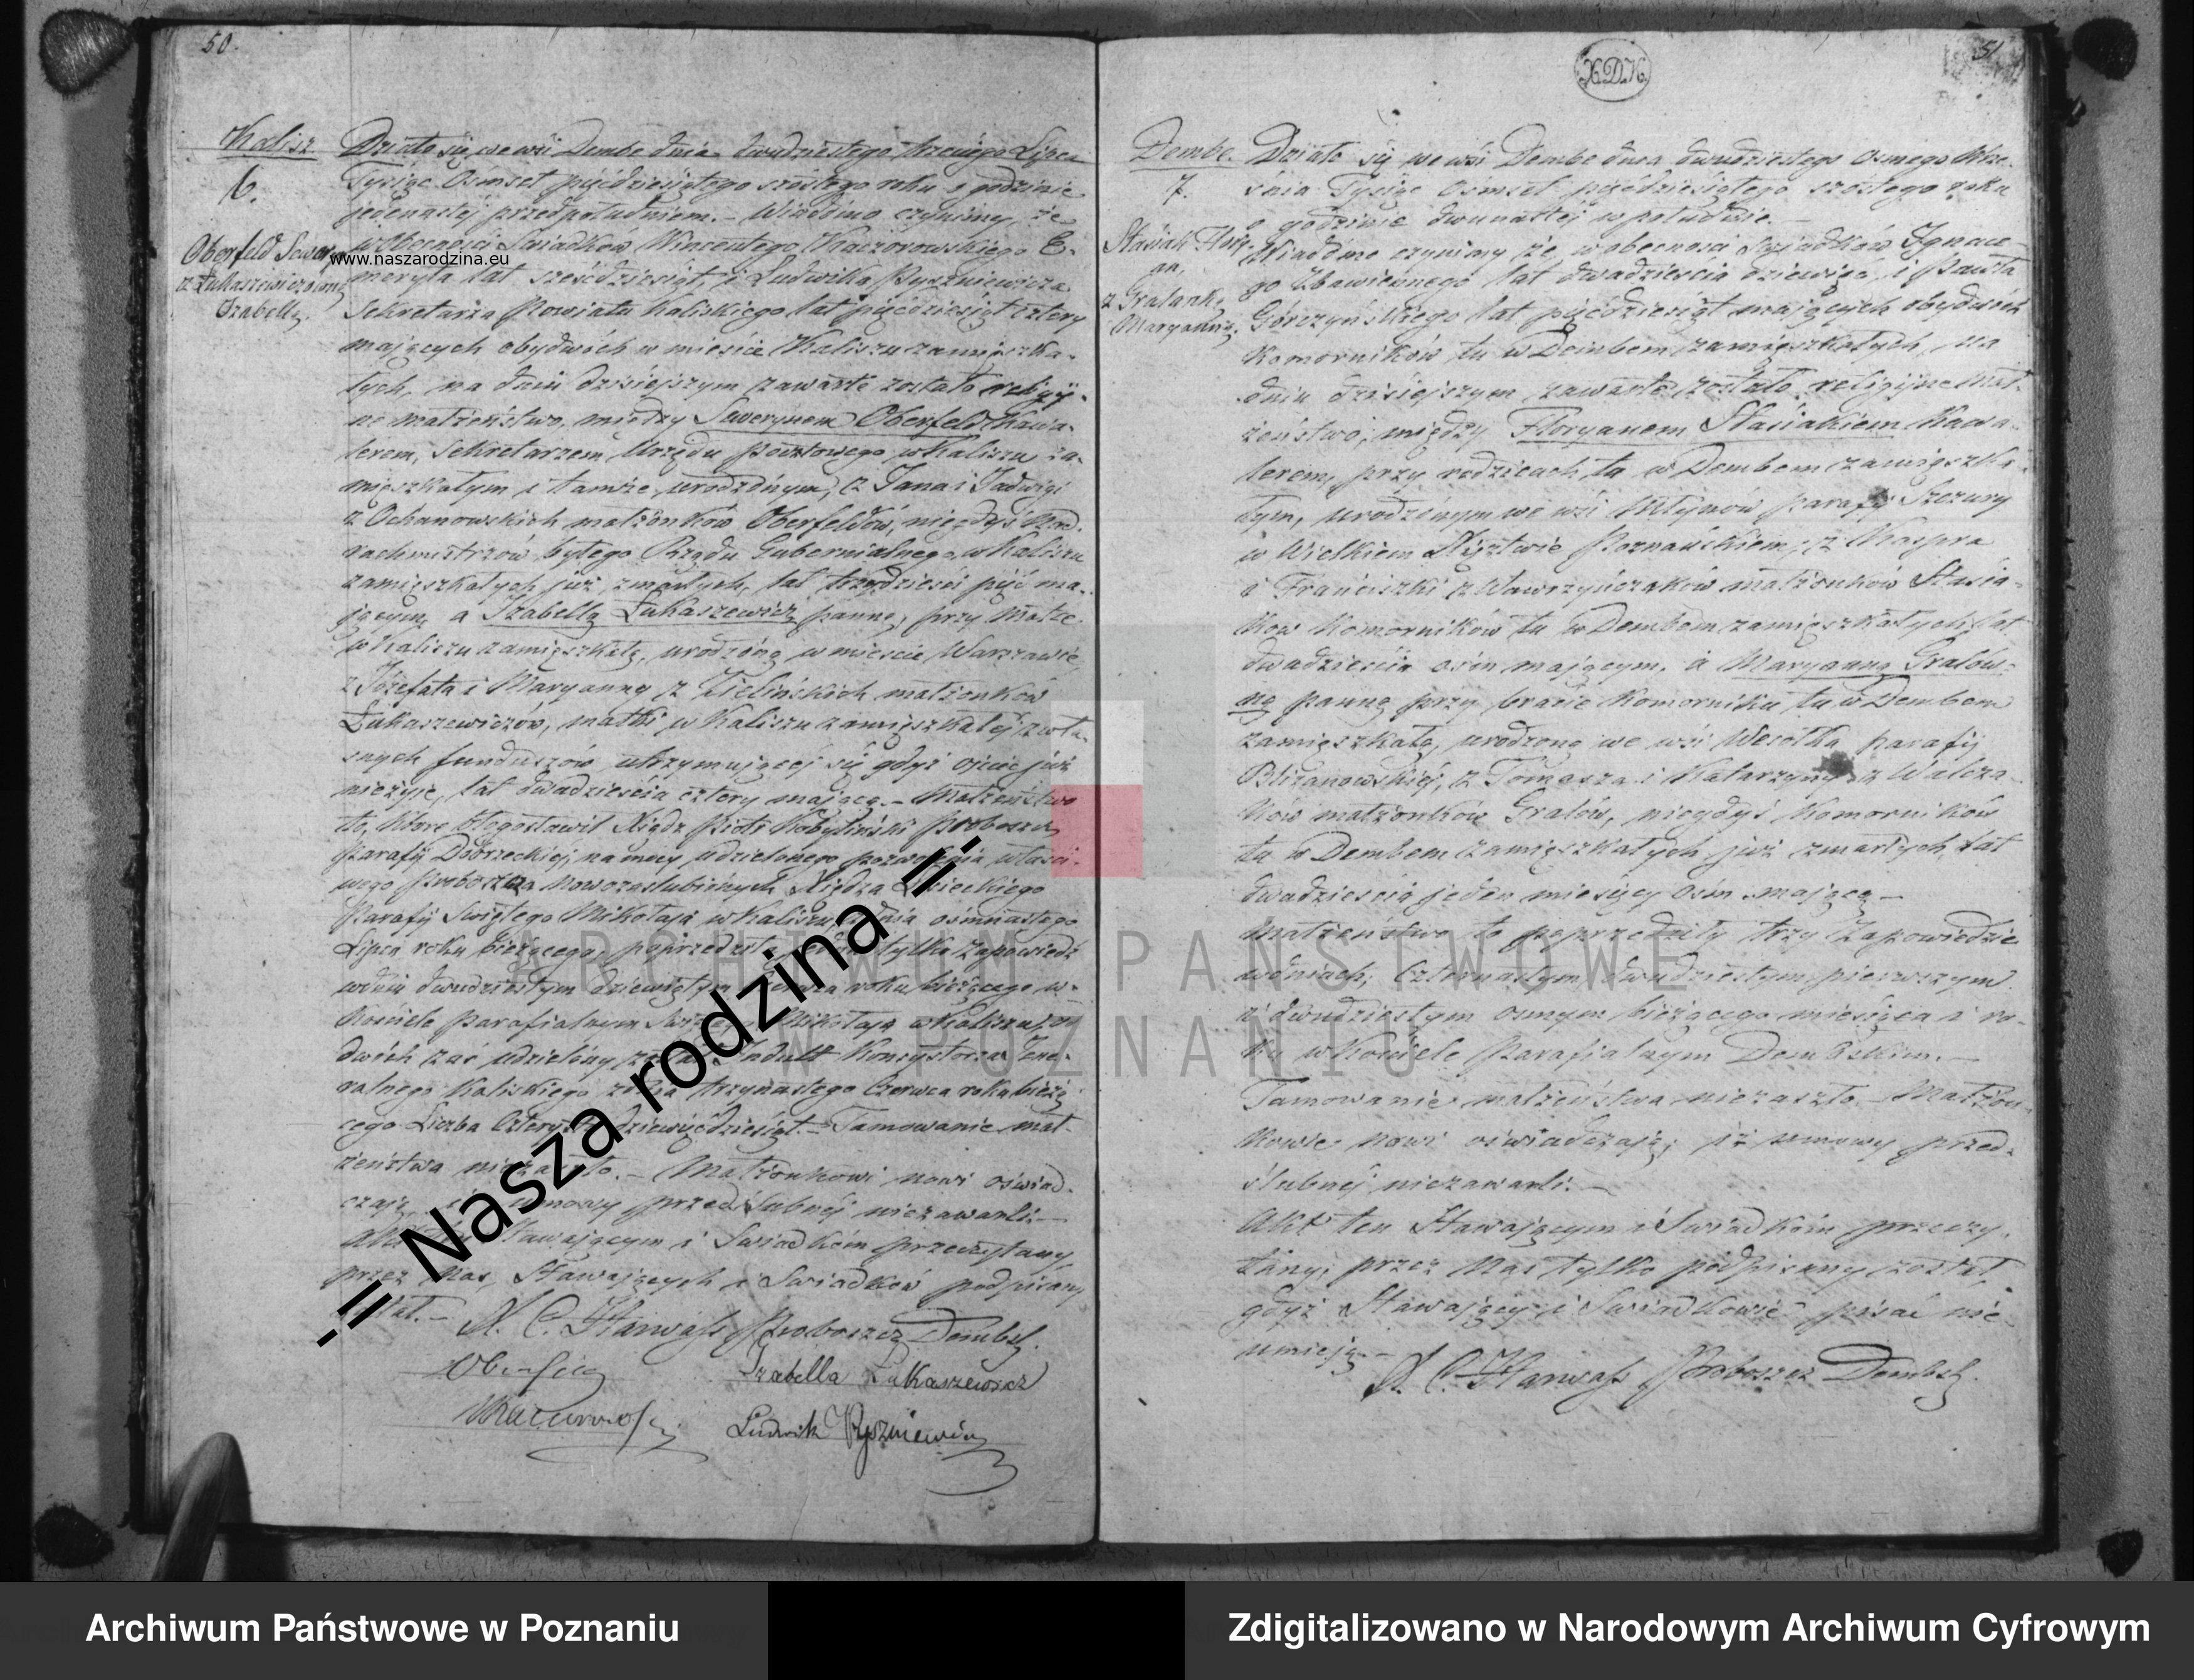 50.
Kalisz
6.
Oberfeld Sewer
z Łukaszewiczówną
Izabellą.
www.naszarodzina.eu
Działo się we wsi Dembe dnia dwudziestego trzeciego Lipca
Tysiąc Osmset pięćdziesiątego szóstego roku o godzinie
jedenastej przedpołudniem. – Wiadomo czynimy, że
w Obecności Świadków Wincentego Kaczorowskiego E-
meryta lat sześćdziesiąt, i Ludwika Pyszniewicza
Sekretarza Powiatu Kaliskiego lat pięćdziesiąt cztery
mających obydwóch w mieście Kaliszu zamięszka-
łych, na dniu dzisiejszym zawarte zostało religij-
ne małżeństwo, między Sewerynem Oberfeld Kawa-
lerem, Sekretarzem Urzędu pocztowego w Kaliszu za-
mięszkałym i tamże urodzonym, z Jana i Jadwigi
z Ochanowskich małżonków Oberfeldów, niegdyś Nad-
rachmistrzów byłego Rządu Gubernialnego w Kaliszu
zamięszkałych już zmarłych, lat trzydzieści pięć ma-
jącym, a Izabellą Łukaszewicz panną, przy Matce
w Kaliszu zamięszkałą, urodzoną w mieście Warszawie,
z Józefata i Maryanny z Zielińskich małżonków
Łukaszewiczów, matki w Kaliszu zamięszkałej z wła-
snych funduszów utrzymującej się gdyż ojciec już
nieżyje, lat dwadzieścia cztery mającą. – Małżeństwo
to, które błogosławił Ksiądz Piotr Kobyliński Proboszcz
Parafij Dobrzeckiej, na mocy udzielonego pozwolenia właści-
wego Proboszcza Nowozaślubionych Księdza
Parafij Świętego Mikołaja w Kaliszu, z dnia osmnastego
Lipca roku bieżącego, poprzedziła jedna tylko zapowiedź
w dniu dwudziestym dziewiątym Czerwca roku bieżącego w
Kościele Parafialnym Świętego Mikołaja w Kaliszu, od
dwóch zaś udzielony został Indult Konsystorza Jene-
ralnego Kaliskiego z dnia trzynastego Czerwca roku bieżą-
cego Liczba Czterysta dziewięćdziesiąt. – Tamowanie mał-
żeństwa niezaszło. – Małżonkowi nowi oświad-
czają, iż umowy przedślubnej niezawarli. –
Akt ten Stawającym i Świadkom przeczytany,
przez Nas, Stawających i Świadków podpisany
został. – X. C. Harwass Proboszcz Dembski.
Oberfeld Izabella Łukaszewicz
Kaczorowski Ludwik Pyszniewicz
-= Nasza rodzina =-
X.D.K.
51
Dembe.
7.
Stasiak Flory-
an,
z Gralanką
Maryanną.
Działo się we wsi Dembe dnia dwudziestego osmego Wrze-
śnia Tysiąc Osmset pięćdziesiątego szóstego roku
o godzinie dwunastej w południe. –
Wiadomo czynimy że w obecności Świadków Ignace-
go Zbawiennego lat dwadzieścia dziewięć, i Pawła
Górczyńskiego lat pięćdziesiąt mających obydwóch
Komorników tu w Dembem zamięszkałych, na
dniu dzisiejszym zawarte zostało religijne mał-
żeństwo, między Floryanem Stasiakiem Kawa-
lerem, przy rodzicach tu w Dembem zamięszka-
łym, urodzonym we wsi Młynów parafij Szczury
w Wielkiem Xięztwie Poznańskiem, z Kaspra
i Franciszki z Wawrzyńczaków małżonków Stasia-
ków Komorników tu w Dembem zamięszkałych, lat
dwadzieścia osm mającym, a Maryanną Gralów-
ną panną przy bracie Komorniku tu w Dembem
zamięszkałą, urodzoną we wsi Wesółka parafij
Blizanowskiej, z Tomasza i Katarzyny z Walcza-
ków małżonków Gralów, niegdyś Komorników
tu w Dembem zamięszkałych już zmarłych, lat
dwadzieścia jeden miesięcy osm mającą –
Małżeństwo to poprzedziły trzy Zapowiedzie
w dniach, Czternastym, dwudziestym pierwszym
i dwudziestym osmym bieżącego miesiąca i ro-
ku w Kościele Parafialnym Dembskim. –
Tamowanie małżeństwa niezaszło – Małżon-
kowie nowi oświadczają, iż umowy przed-
ślubnej niezawarli. –
Akt ten Stawającym i Świadkom przeczy-
tany, przez Nas tylko podpisany został,
gdyż Stawający i Świadkowie pisać nie-
umieją. –
X. C. Harwass Proboszcz Dembski.
ARCHIWUM PAŃSTWOWE
W POZNANIU
Archiwum Państwowe w Poznaniu
Zdigitalizowano w Narodowym Archiwum Cyfrowym